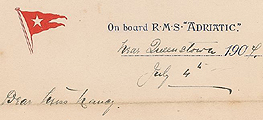 On board R·M·S·"ADRIATIC."
Near Queenstown 1907.
July 4th
Dear Miss